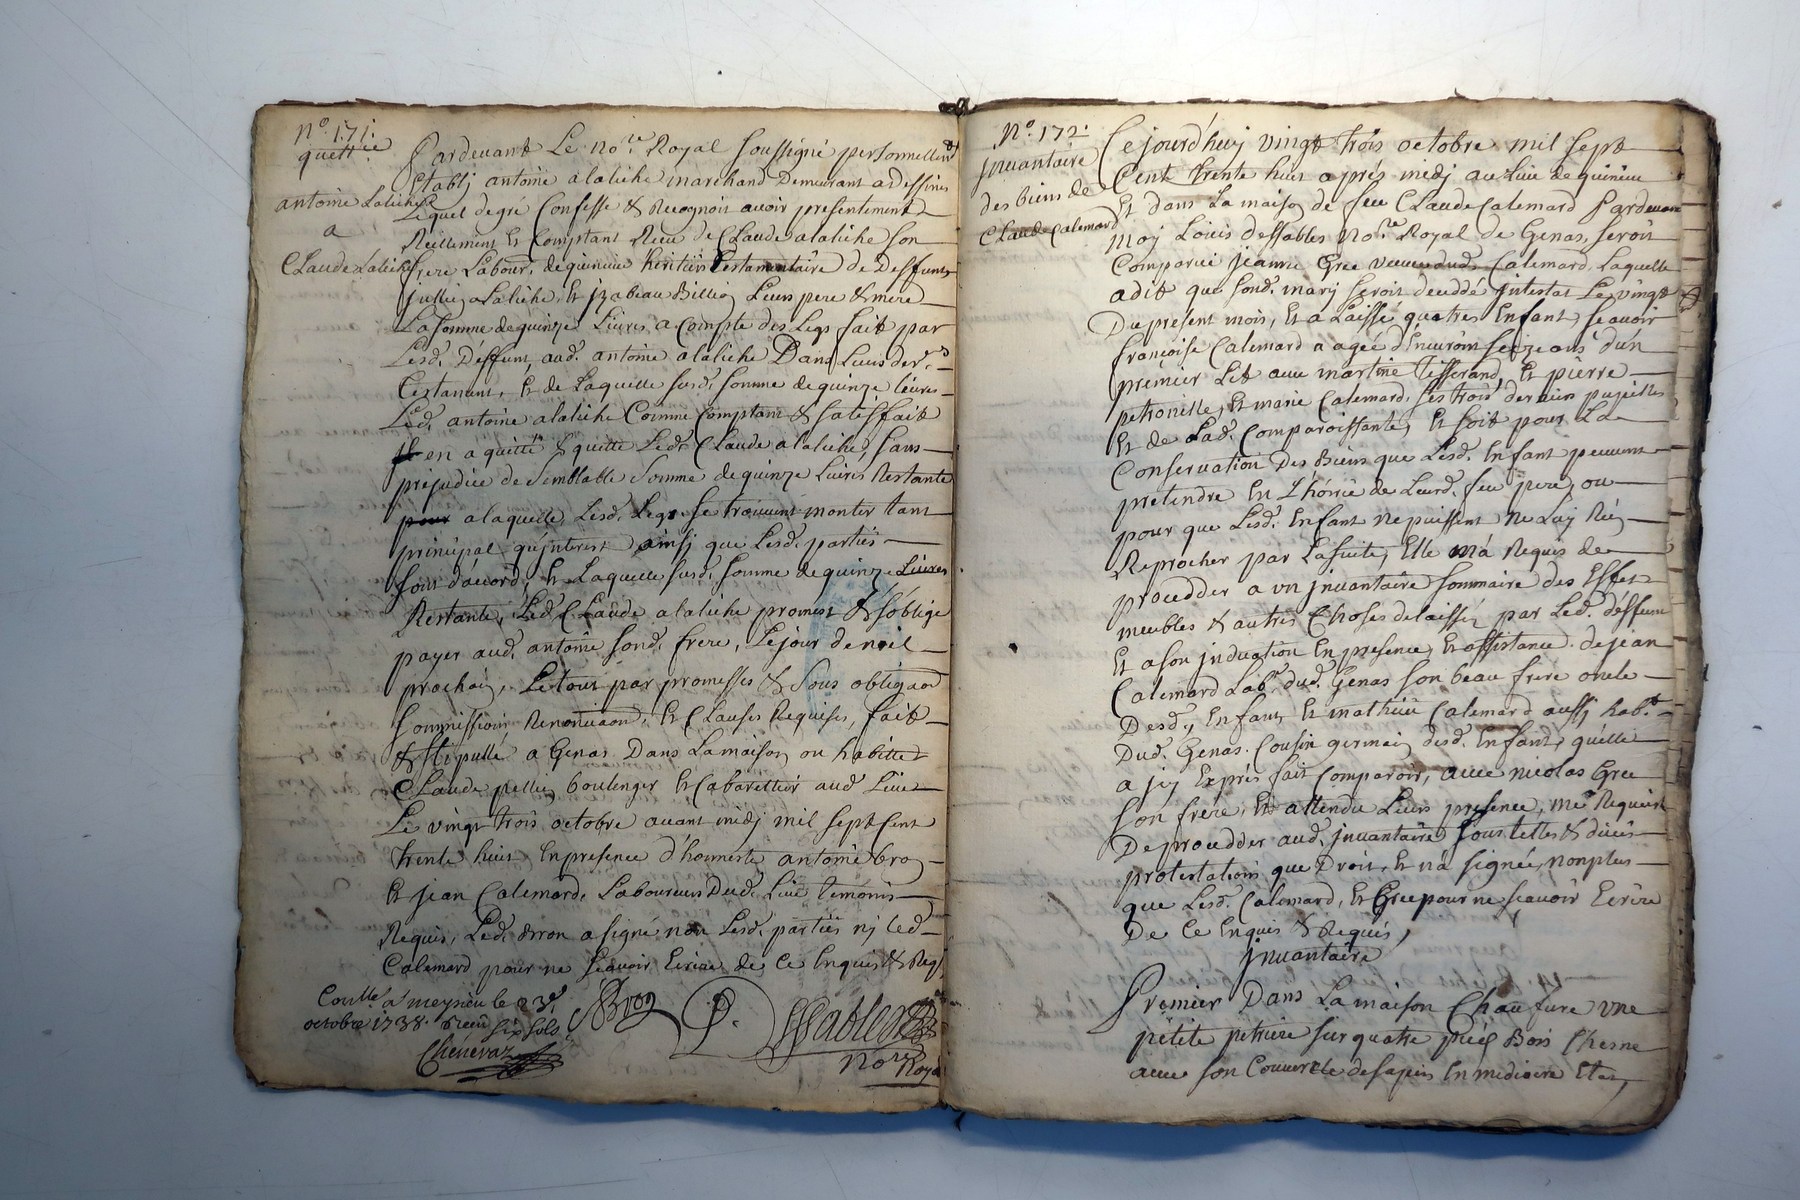 N.° 171.
quitt.ce
antoine Laliche
a
Claude Laliche
Pardevant Le no.re Royal soussigné personnellemt
Establj antoine alaliche marchand Demeurant a dessines
Lequel de gré Confesse & Recognoit avoir presentement
Réellement Et Comptant Receu de Claude alaliche son
frere Labour. de quinieu heritier testamentaire de Deffunts
jullien alaliche, Et jzabeau Billion Leurs pere & mere
La somme de quinze Livres a Compte des Legs fait par
Lesd. Déffunt, aud. antoine alaliche Dans Leurs der.rs
testament, Et de Laquelle susd. somme de quinze livres
Led. antoine alaliche Comme Comptant & satisfait
en a quitté & quitte Led. Claude alaliche, sans
préjudice de semblable somme de quinze Livres Restante
a laquelle Lesd. Legs se trouvent monter tant
principal qu'jnterest ainsj que Lesd. parties
sont d'acord, Et Laquelle susd. somme de quinze Livres
Restante, Led. Claude alaliche promest & s'oblige
payer aud. antoine sond. frere, Le jour de noel
prochain, Le tout par promesses & sous obligaon
soumissions Renonciaon, Et Clauses Requises, fait
& stipullé a Genas Dans La maison ou habitte
Claude pellin boulenger Et Cabarettier aud. Lieu
Le vingt trois octobre avant midj mil sept Cent
trente huit En presence d'honneste antoine bron
Et jean Calemard, Laboureurs Dud. Lieu temoins
Requis, Led. Brron a signé non Lesd. parties nj led.
Calemard pour ne sçavoir Ecrire de Ce Enquis & Req.
Coulle a meysieu le 23e
octobre 1738. Receu
six sols
Chenevaz
ABron
Dessables
No.re Royal
N.° 172.
jnvantaire
des biens de
Claude Calemard
Cejourd'huy vingt trois octobre mil sept
Cent trente huit aprés midj au Lieu de quinieu
Et dans La maison de feu Claude Calemard Pardevant
Moy Loüis dessables No.re Royal de Genas, seroit
Comparüe jeanne Gree veuve dud. Calemard, Laquelle
a dit que sond. mary seroit decedé jntestat Le vingt
Du present mois, Et a Laissé quatres Enfant, sçavoir
françoise Calemard agée d'Enuiron seize ans d'un
premier Lit avec martine tisserand, Et pierre
petronille, Et marie Calemard, Les trois dernier pupilles
Et de Lad. Comparoissante, Et soit pour La
Conservation Des Biens que Lesd. Enfant peuvent
pretendre En L'hoirie de Leurd. feu pere, ou
pour que Lesd. Enfant ne puissent ne Luj Rien
Reprocher par La suite, Elle m'a Requis de
proceder a vn jnvantaire sommaire des Effets
meubles & autres Choses delaissés par Led. déffunt
Et a son jnduction En presence, Et assistance de jean
Calemard Lab.r dud. Genas son beau frere oncle
Desd. Enfant, Et mathieu Calemard aussj hab.t
Dud. Genas Cousin germain desd. Enfant, qu'elle
a jcy Exprés fait Comparoir, avec nicolas Gree
son frere, Et attendu Leurs presence, me Requiert
De proceder aud. jnvantaire sous telles & dües
protestations que Droit, Et n'a signée, nonplus
que Lesd. Calemard, Et Gree pour ne sçavoir Ecrire
De Ce Enquis & Requis,
jnvantaire
Premier Dans La maison Chauffure vne
petite petriere sur quatre piéd Bois Chesne
avec son Couvercle de sapin En mediocre Etat,